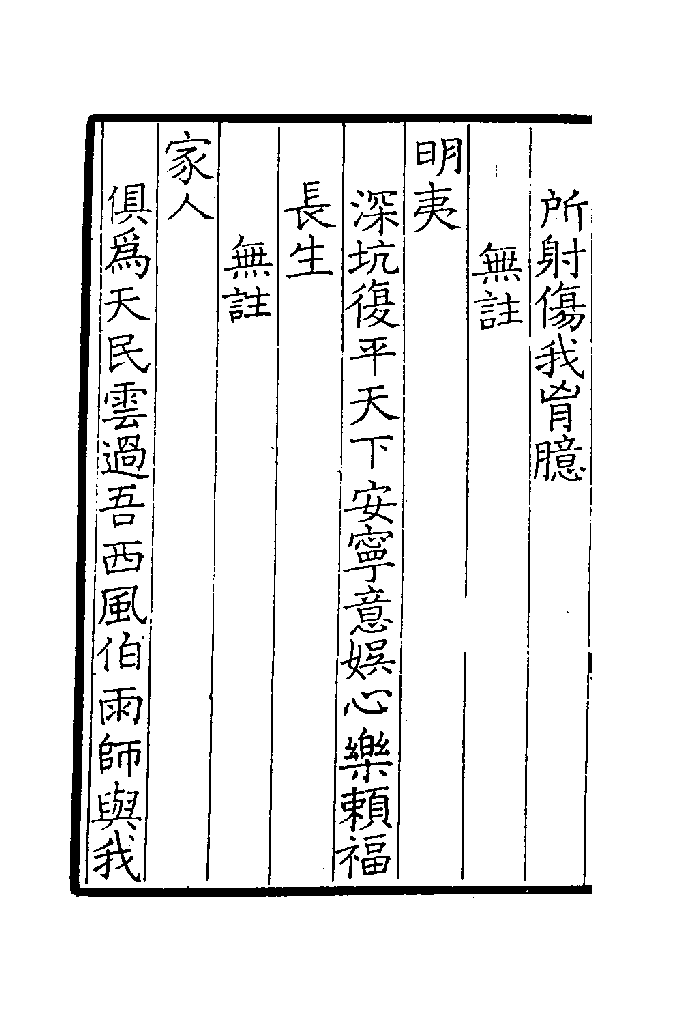 所射傷我胷臆
無註
明夷
深坑復平天下安寧意娱心樂頼福
長生
無註
家人
俱爲天民雲過吾西風伯雨師與我